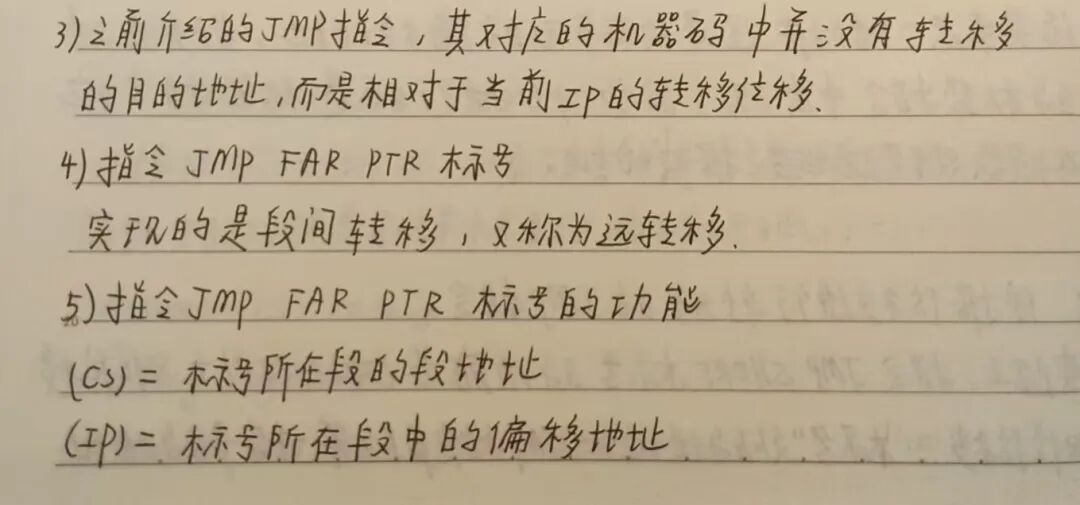 3)之前介绍的JMP指令,其对应的机器码中并没有转移
的目的地址,而是相对于当前IP的转移位移.
4)指令 JMP FAR PTR 标号
实现的是段间转移,又称为远转移.
5)指令JMP FAR PTR 标号的功能
(CS)= 标号所在段的段地址
(IP)= 标号所在段中的偏移地址